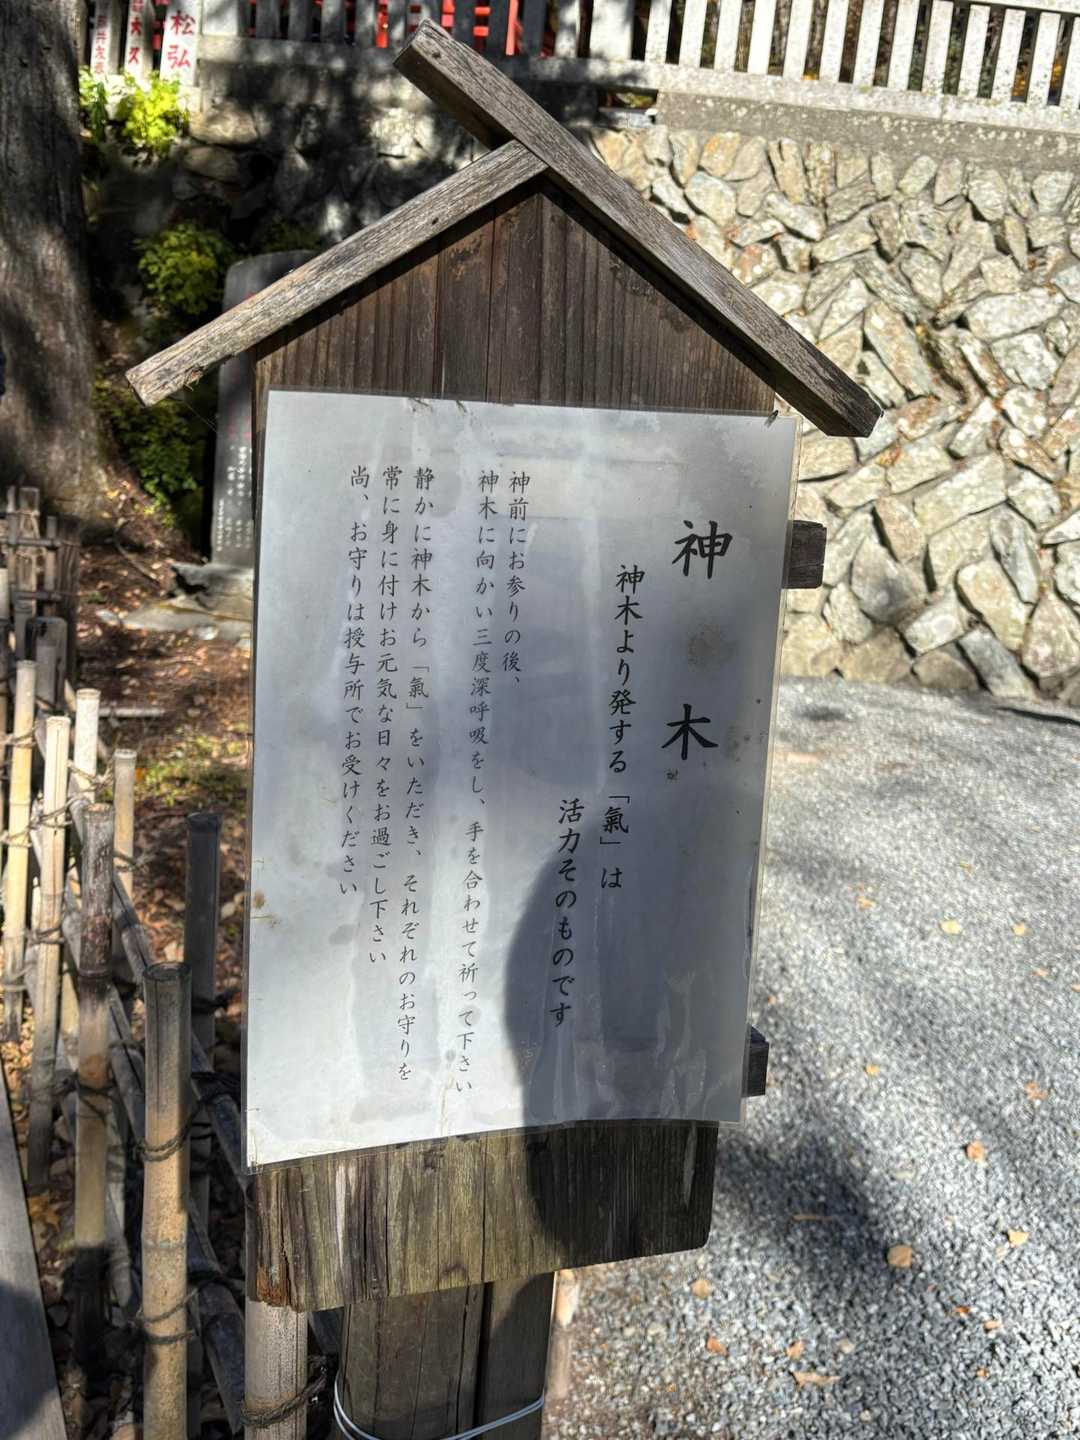 神木
神木より発する「氣」は
活力そのものです
神前にお参りの後、
神木に向かい三度深呼吸をし、手を合わせて祈って下さい
静かに神木から「氣」をいただき、それぞれのお守りを
常に身に付けお元気な日々をお過ごし下さい
尚、お守りは授与所でお受けください
松弘